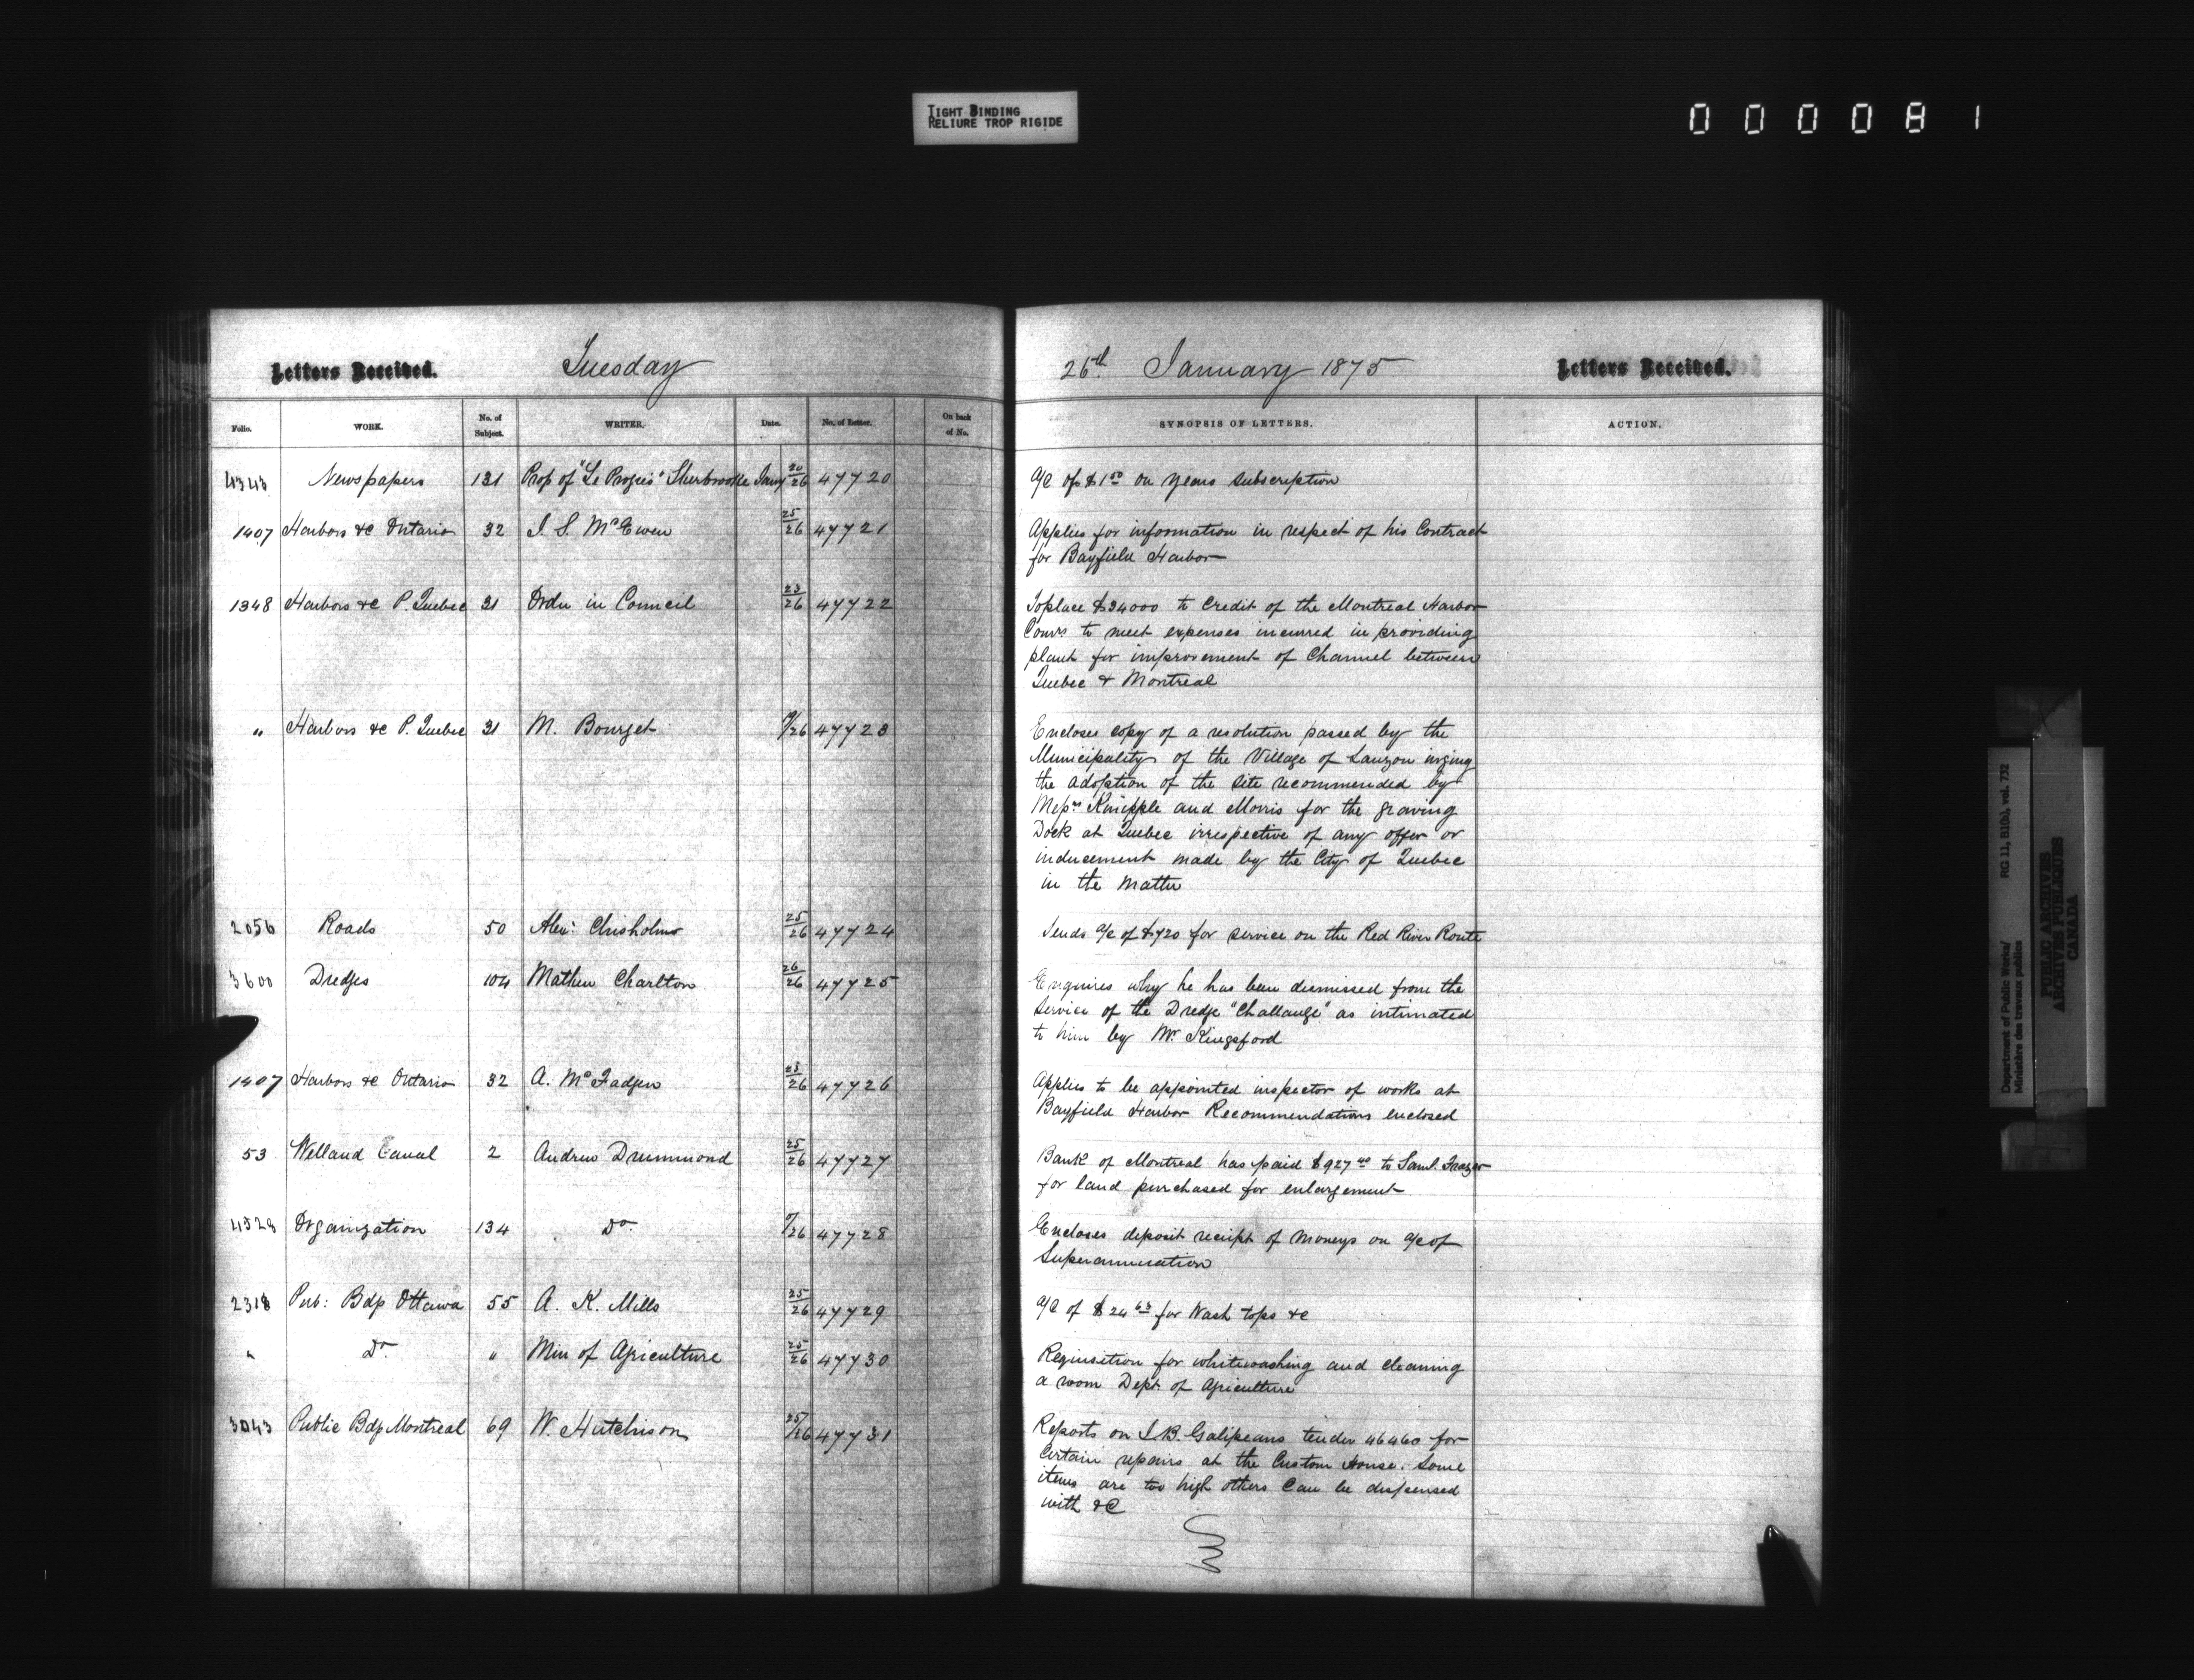 TIGHT BINDING
RELIURE TROP RIGIDE
000081
Letters Received.
Tuesday
Folio. WORK. No. of Subject. WRITER. Date. No. of Letter. On back of No.
4343 Newspapers 131 Prop of "Le Progrès" Sherbrooke Jany 20/26 47720
1407 Harbors &c Ontario 32 J. S. McEwen 25/26 47721
1348 Harbors &c P. Quebec 31 Order in Council 23/26 47722
" Harbors &c P. Quebec 31 M. Bourget /26 47723
2056 Roads 50 Alex: Chisholm 25/26 47724
3600 Dredges 104 Mathew Charlton 26/26 47725
1407 Harbors &c Ontario 32 A. McFadyen 23/26 47726
53 Welland Canal 2 Andrew Drummond 25/26 47727
4528 Organization 134 Do. /26 47728
2318 Pub: Bdgs Ottawa 55 A. K. Mills 25/26 47729
" Do. " Min of Agriculture 25/26 47730
3043 Public Bdgs Montreal 69 W. Hutchison 25/26 47731
26th January 1875
Letters Received.
SYNOPSIS OF LETTERS. ACTION.
A/C of $1 50 on years subscription
Applies for information in respect of his Contract
for Bayfield Harbor
To place $34000 to Credit of the Montreal Harbor
Comrs to meet expenses incurred in providing
plant for improvement of Channel between
Quebec & Montreal
Encloses copy of a resolution passed by the
Municipality of the Village of Lauzon urging
the adoption of the site recommended by
Messrs Kinipple and Morris for the graving
Dock at Quebec irrespective of any offer or
inducement made by the City of Quebec
in the matter
Sends a/c of $720 for service on the Red River Route
Enquires why he has been dismissed from the
service of the Dredge "Challange" as intimated
to him by Mr. Kingsford
Applies to be appointed inspector of works at
Bayfield Harbor Recommendations enclosed
Bank of Montreal has paid $927 40 to Saml. Frazer
for land purchased for enlargement
Encloses deposit receipt of moneys on a/c of
Superannuation
A/C of $24 63 for Wash tops &c
Requisition for whitewashing and cleaning
a room Dept. of Agriculture
Reports on J. B. Galipeaus tender 46460 for
Certain repairs at the Custom House. Some
items are too high others Can be dispensed
with &c
Department of Public Works/ RG 11, B1(b), vol. 732
Ministère des travaux publics
PUBLIC ARCHIVES
ARCHIVES PUBLIQUES
CANADA